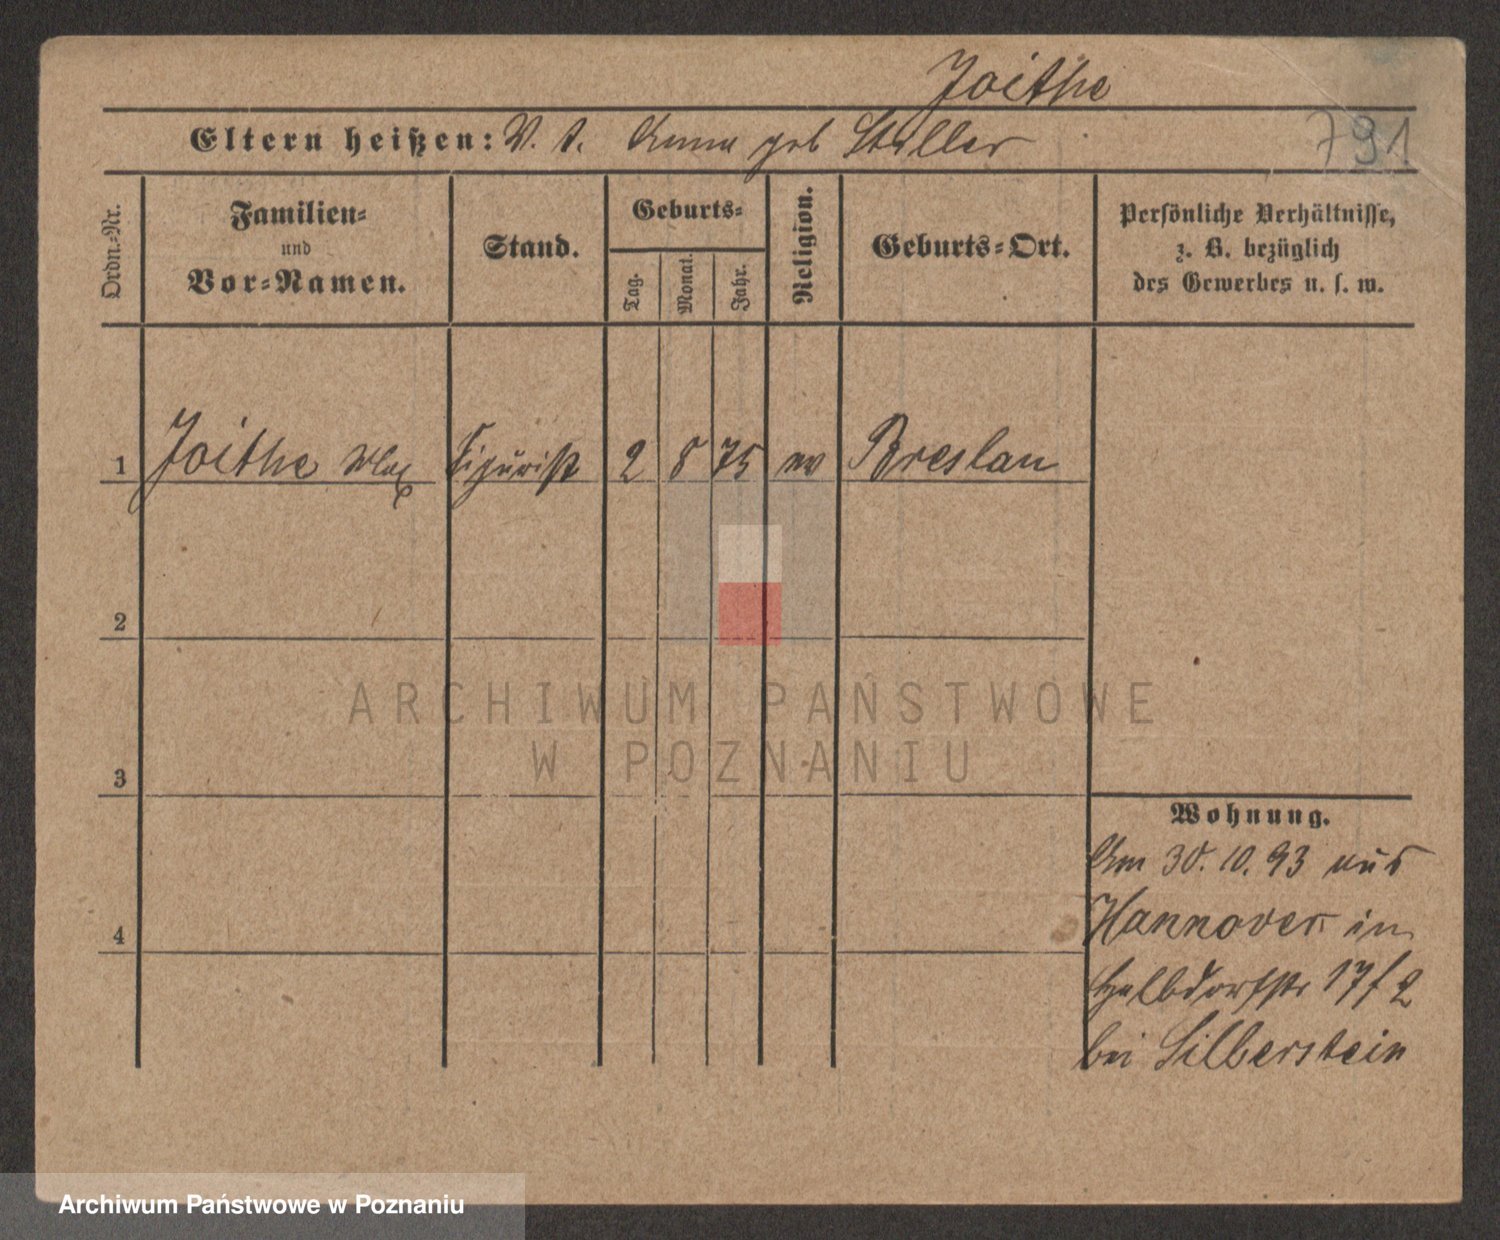 Joithe
Eltern heißen: V. t. Anna geb Stiller
791
Ordn.-Nr.
Familien-
und
Vor-Namen.
Stand.
Geburts-
Tag.
Monat.
Jahr.
Religion.
Geburts-Ort.
Persönliche Verhältnisse,
z. B. bezüglich
des Gewerbes u. s. w.
1 Joithe Max Figurist 2 8 75 ev Breslau
2
ARCHIWUM PAŃSTWOWE
W POZNANIU
3
Wohnung.
Am 30.10.93 aus
Hannover in
4
Halbdorfstr 17 f 2
bei Silberstein
Archiwum Państwowe w Poznaniu